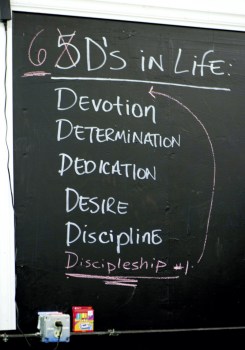 6 5 D's in Life:
Devotion
Determination
Dedication
Desire
Discipline
Discipleship #1